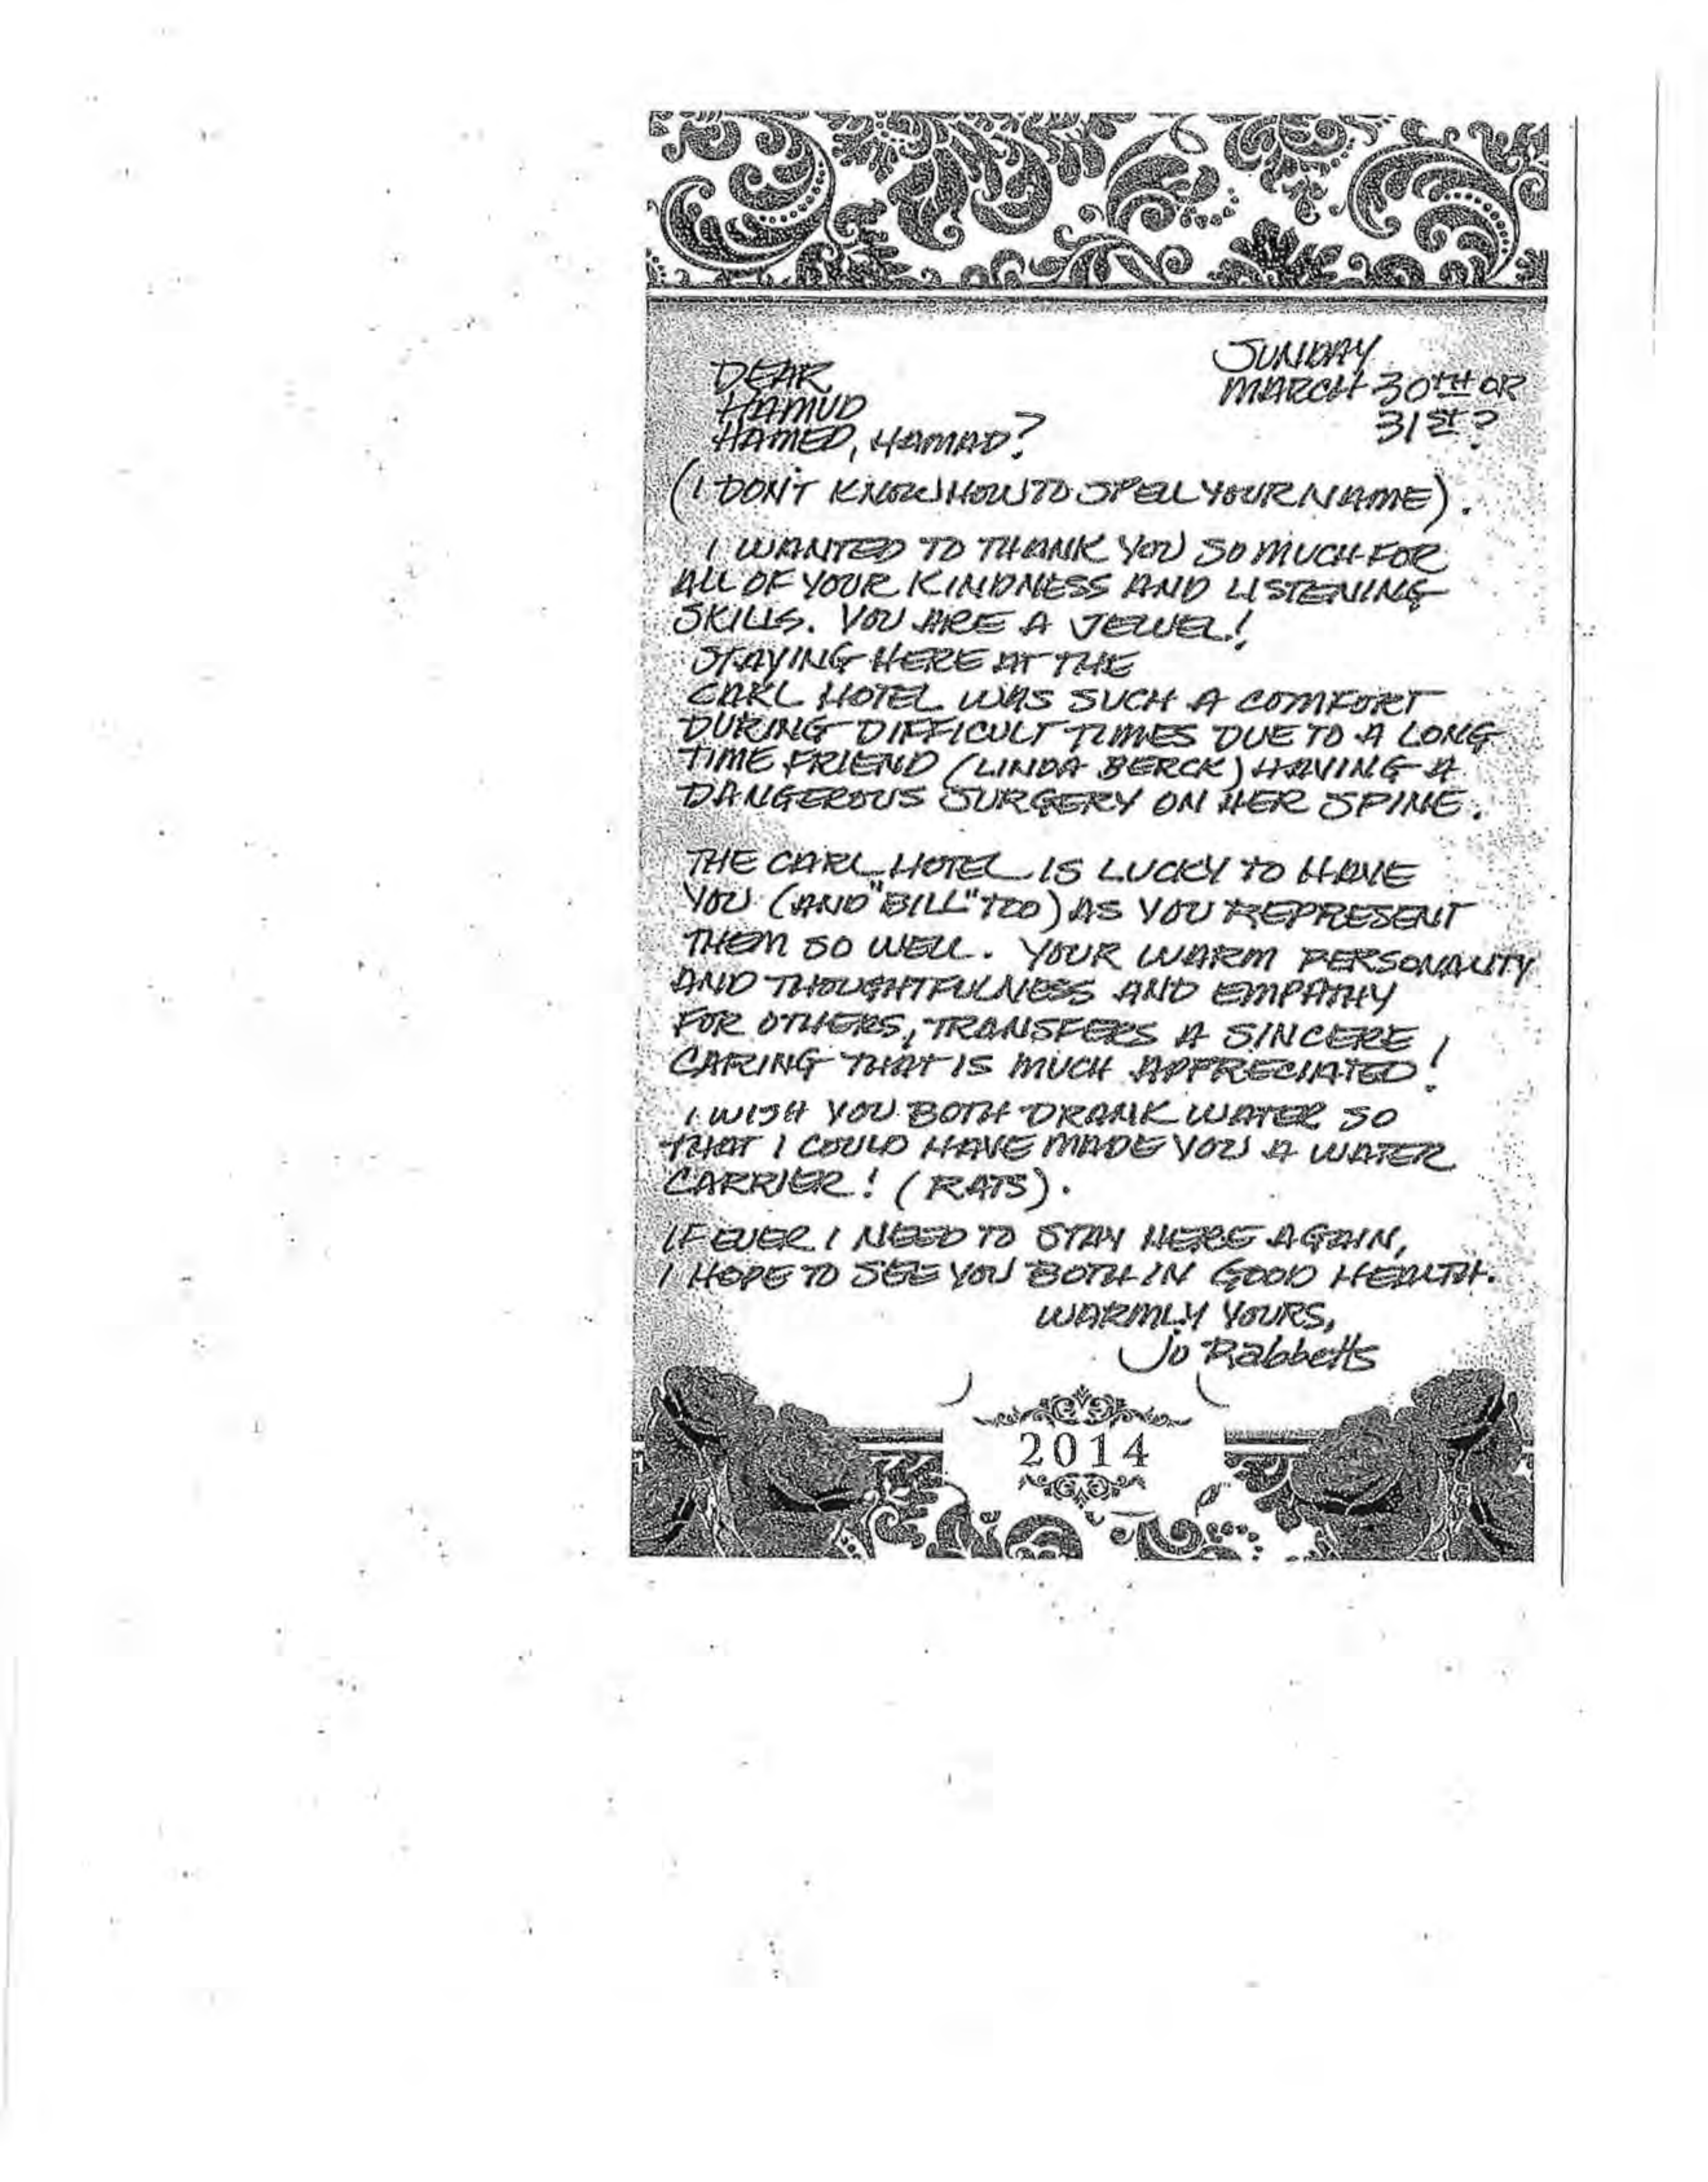 SUNDAY
MARCH 30TH OR
31ST?
DEAR
HAMUD
HAMED, HAMAD?
(I DON'T KNOW HOW TO SPELL YOUR NAME).
I WANTED TO THANK YOU SO MUCH FOR
ALL OF YOUR KINDNESS AND LISTENING
SKILLS. YOU ARE A JEWEL!
STAYING HERE AT THE
CARL HOTEL WAS SUCH A COMFORT
DURING DIFFICULT TIMES DUE TO A LONG
TIME FRIEND (LINDA BERCK) HAVING A
DANGEROUS SURGERY ON HER SPINE.
THE CARL HOTEL IS LUCKY TO HAVE
YOU (AND "BILL" TOO) AS YOU REPRESENT
THEM SO WELL. YOUR WARM PERSONALITY
AND THOUGHTFULNESS AND EMPATHY
FOR OTHERS, TRANSFERS A SINCERE
CARING THAT IS MUCH APPRECIATED!
I WISH YOU BOTH DRANK WATER SO
THAT I COULD HAVE MADE YOU A WATER
CARRIER! (RATS).
IF EVER I NEED TO STAY HERE AGAIN,
I HOPE TO SEE YOU BOTH IN GOOD HEALTH.
WARMLY YOURS,
Jo Rabbetts
2014